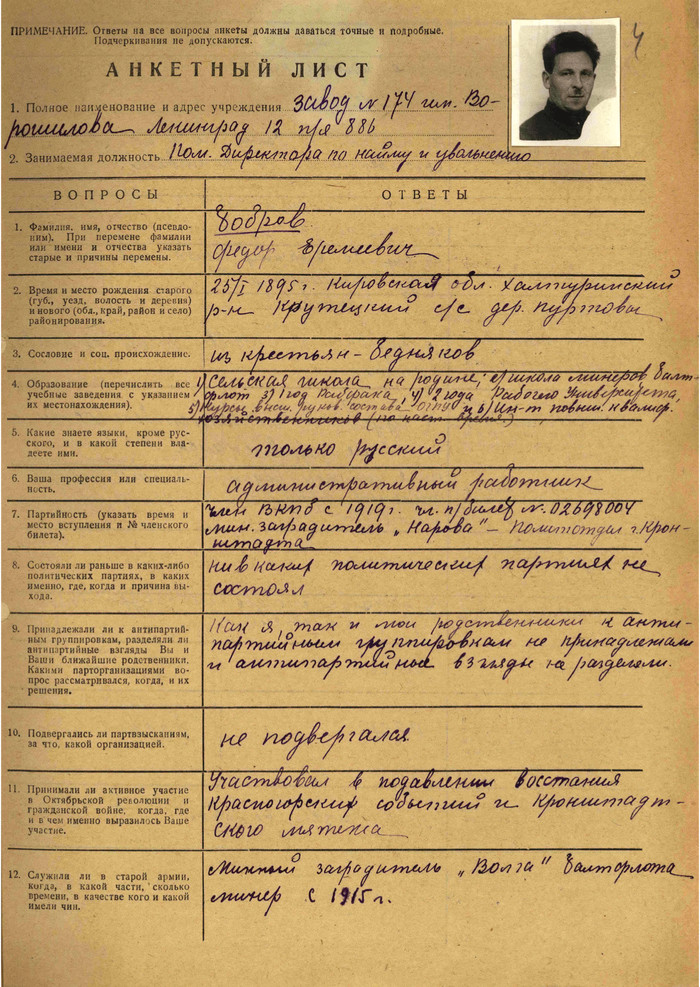 4
ПРИМЕЧАНИЕ. Ответы на все вопросы анкеты должны даваться точные и подробные.
Подчеркивания не допускаются.
АНКЕТНЫЙ ЛИСТ
1. Полное наименование и адрес учреждения завод № 174 им. Во-
рошилова Ленинград 12 п/я 886
2. Занимаемая должность Пом. Директора по найму и увольнению
ВОПРОСЫ
ОТВЕТЫ
1. Фамилия, имя, отчество (псевдо-
ним). При перемене фамилии
или имени и отчества указать
старые и причины перемены.
Бобров
Федор Еремеевич
2. Время и место рождения старого
(губ., уезд, волость и деревня)
и нового (обл., край, район и село)
районирования.
25/I 1895 г. Кировская обл. Халтуринский
р-н Крутецкий с/с дер. Пуртовы
3. Сословие и соц. происхождение.
из крестьян-бедняков
4. Образование (перечислить все
учебные заведения с указанием
их местонахождения).
1) Сельская школа на родине; 2) школа минеров Балт-
флот 3) 1 год Рабфака, 4) 2 года Рабочего Университета,
5) Курсы высш. руков. состава ОГПУ и 6) Ин-т повыш. квалиф.
хозяйственников (по наст. время)
5. Какие знаете языки, кроме рус-
ского, и в какой степени вла-
деете ими.
только русский
6. Ваша профессия или специаль-
ность.
административный работник
7. Партийность (указать время и
место вступления и № членского
билета).
член ВКПб с 1919 г. чл. п/билет №. 02698004
мин. заградитель „Нарова" – Политотдел г. Крон-
штадта
8. Состояли ли раньше в каких-либо
политических партиях, в каких
именно, где, когда и причина вы-
хода.
ни в каких политических партиях не
состоял
9. Принадлежали ли к антипартий-
ным группировкам, разделяли ли
антипартийные взгляды Вы и
Ваши ближайшие родственники.
Какими парторганизациями во-
прос рассматривался, когда, и их
решения.
Как я, так и мои родственники к анти-
партийным группировкам не принадлежали
и антипартийные взгляды не разделяли.
10. Подвергались ли партвзысканиям,
за что, какой организацией.
не подвергался
11. Принимали ли активное участие
в Октябрьской революции и
гражданской войне, когда, где
и в чем именно выразилось Ваше
участие.
Участвовал в подавлении восстания
Красногорских событий и Кронштадт-
ского мятежа
12. Служили ли в старой армии,
когда, в какой части, сколько
времени, в качестве кого и какой
имели чин.
Минный заградитель „Волга" Балтфлота
минер с 1915 г.